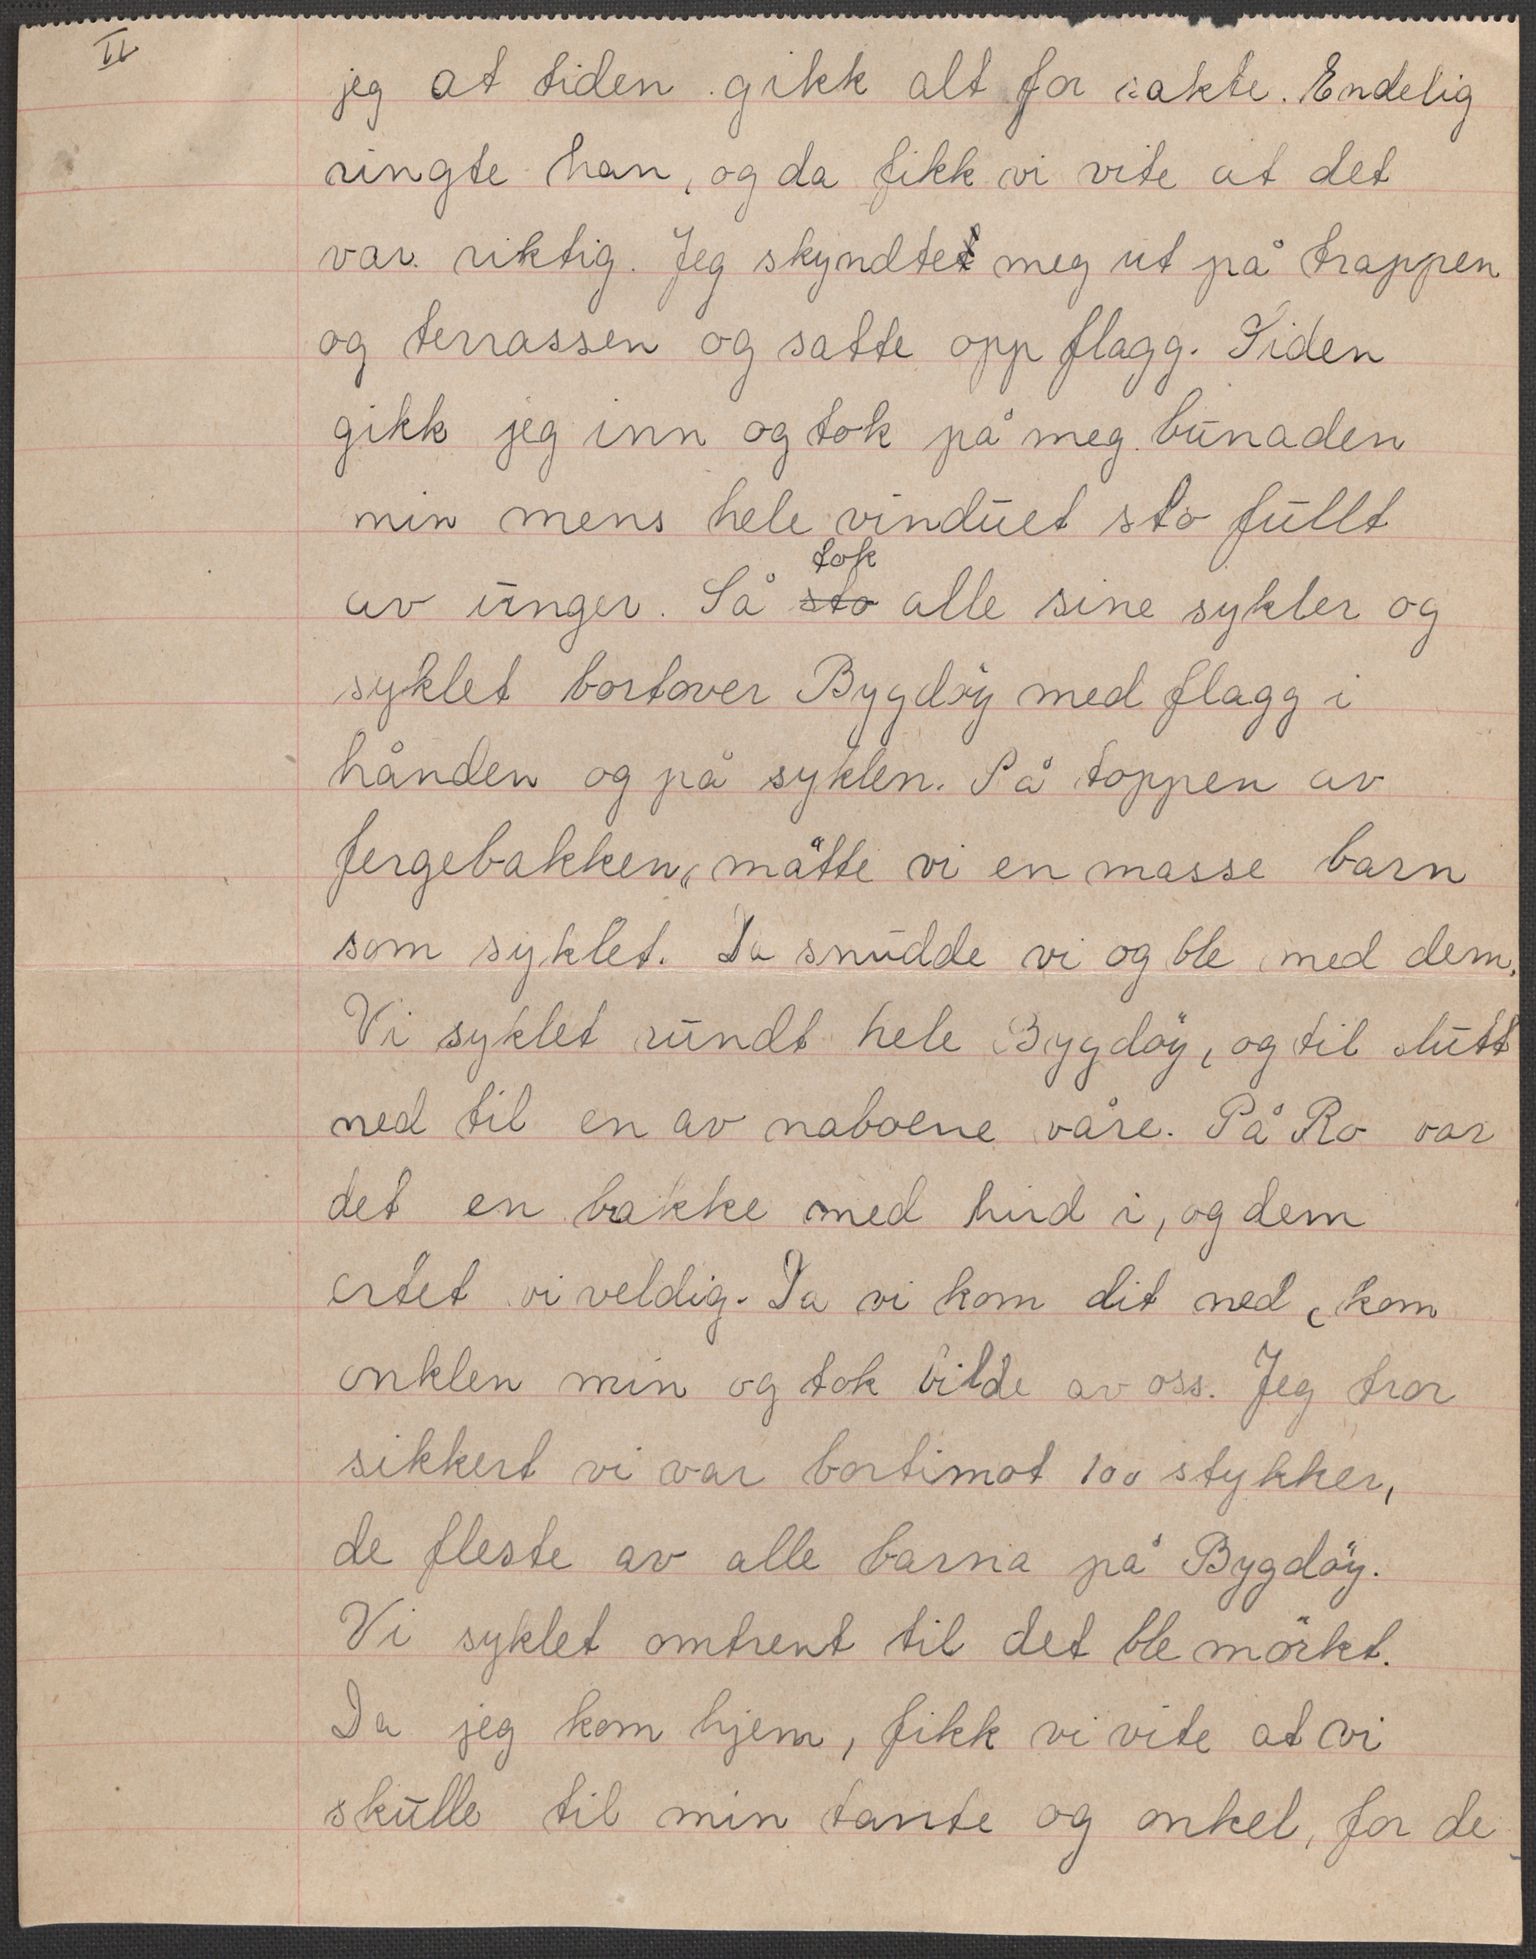 II
jeg at tiden gikk alt for sakte. Endelig
ringte han, og da fikk vi vite at det
var riktig. Jeg skyndte meg ut på trappen
og terrassen og satte opp flagg. Siden
gikk jeg inn og tok på meg bunaden
min mens hele vinduet sto fullt
tok
av unger. Så sto alle sine sykler og
syklet bortover Bygdöy med flagg i
hånden og på syklen. På toppen av
fergebakken, måtte vi en masse barn
som syklet. Da snudde vi og ble med dem.
Vi syklet rundt hele Bygdöy, og til slutt
ned til en av naboene våre. På Ro var
det en bakke med hird i, og dem
ertet vi veldig. Da vi kom dit ned, kom
onklen min og tok bilde av oss. Jeg tror
sikkert vi var bortimot 100 stykker,
de fleste av alle barna på Bygdöy.
Vi syklet omtrent til det ble mörkt.
Da jeg kom hjem, fikk vi vite at vi
skulle til min tante og onkel, for de